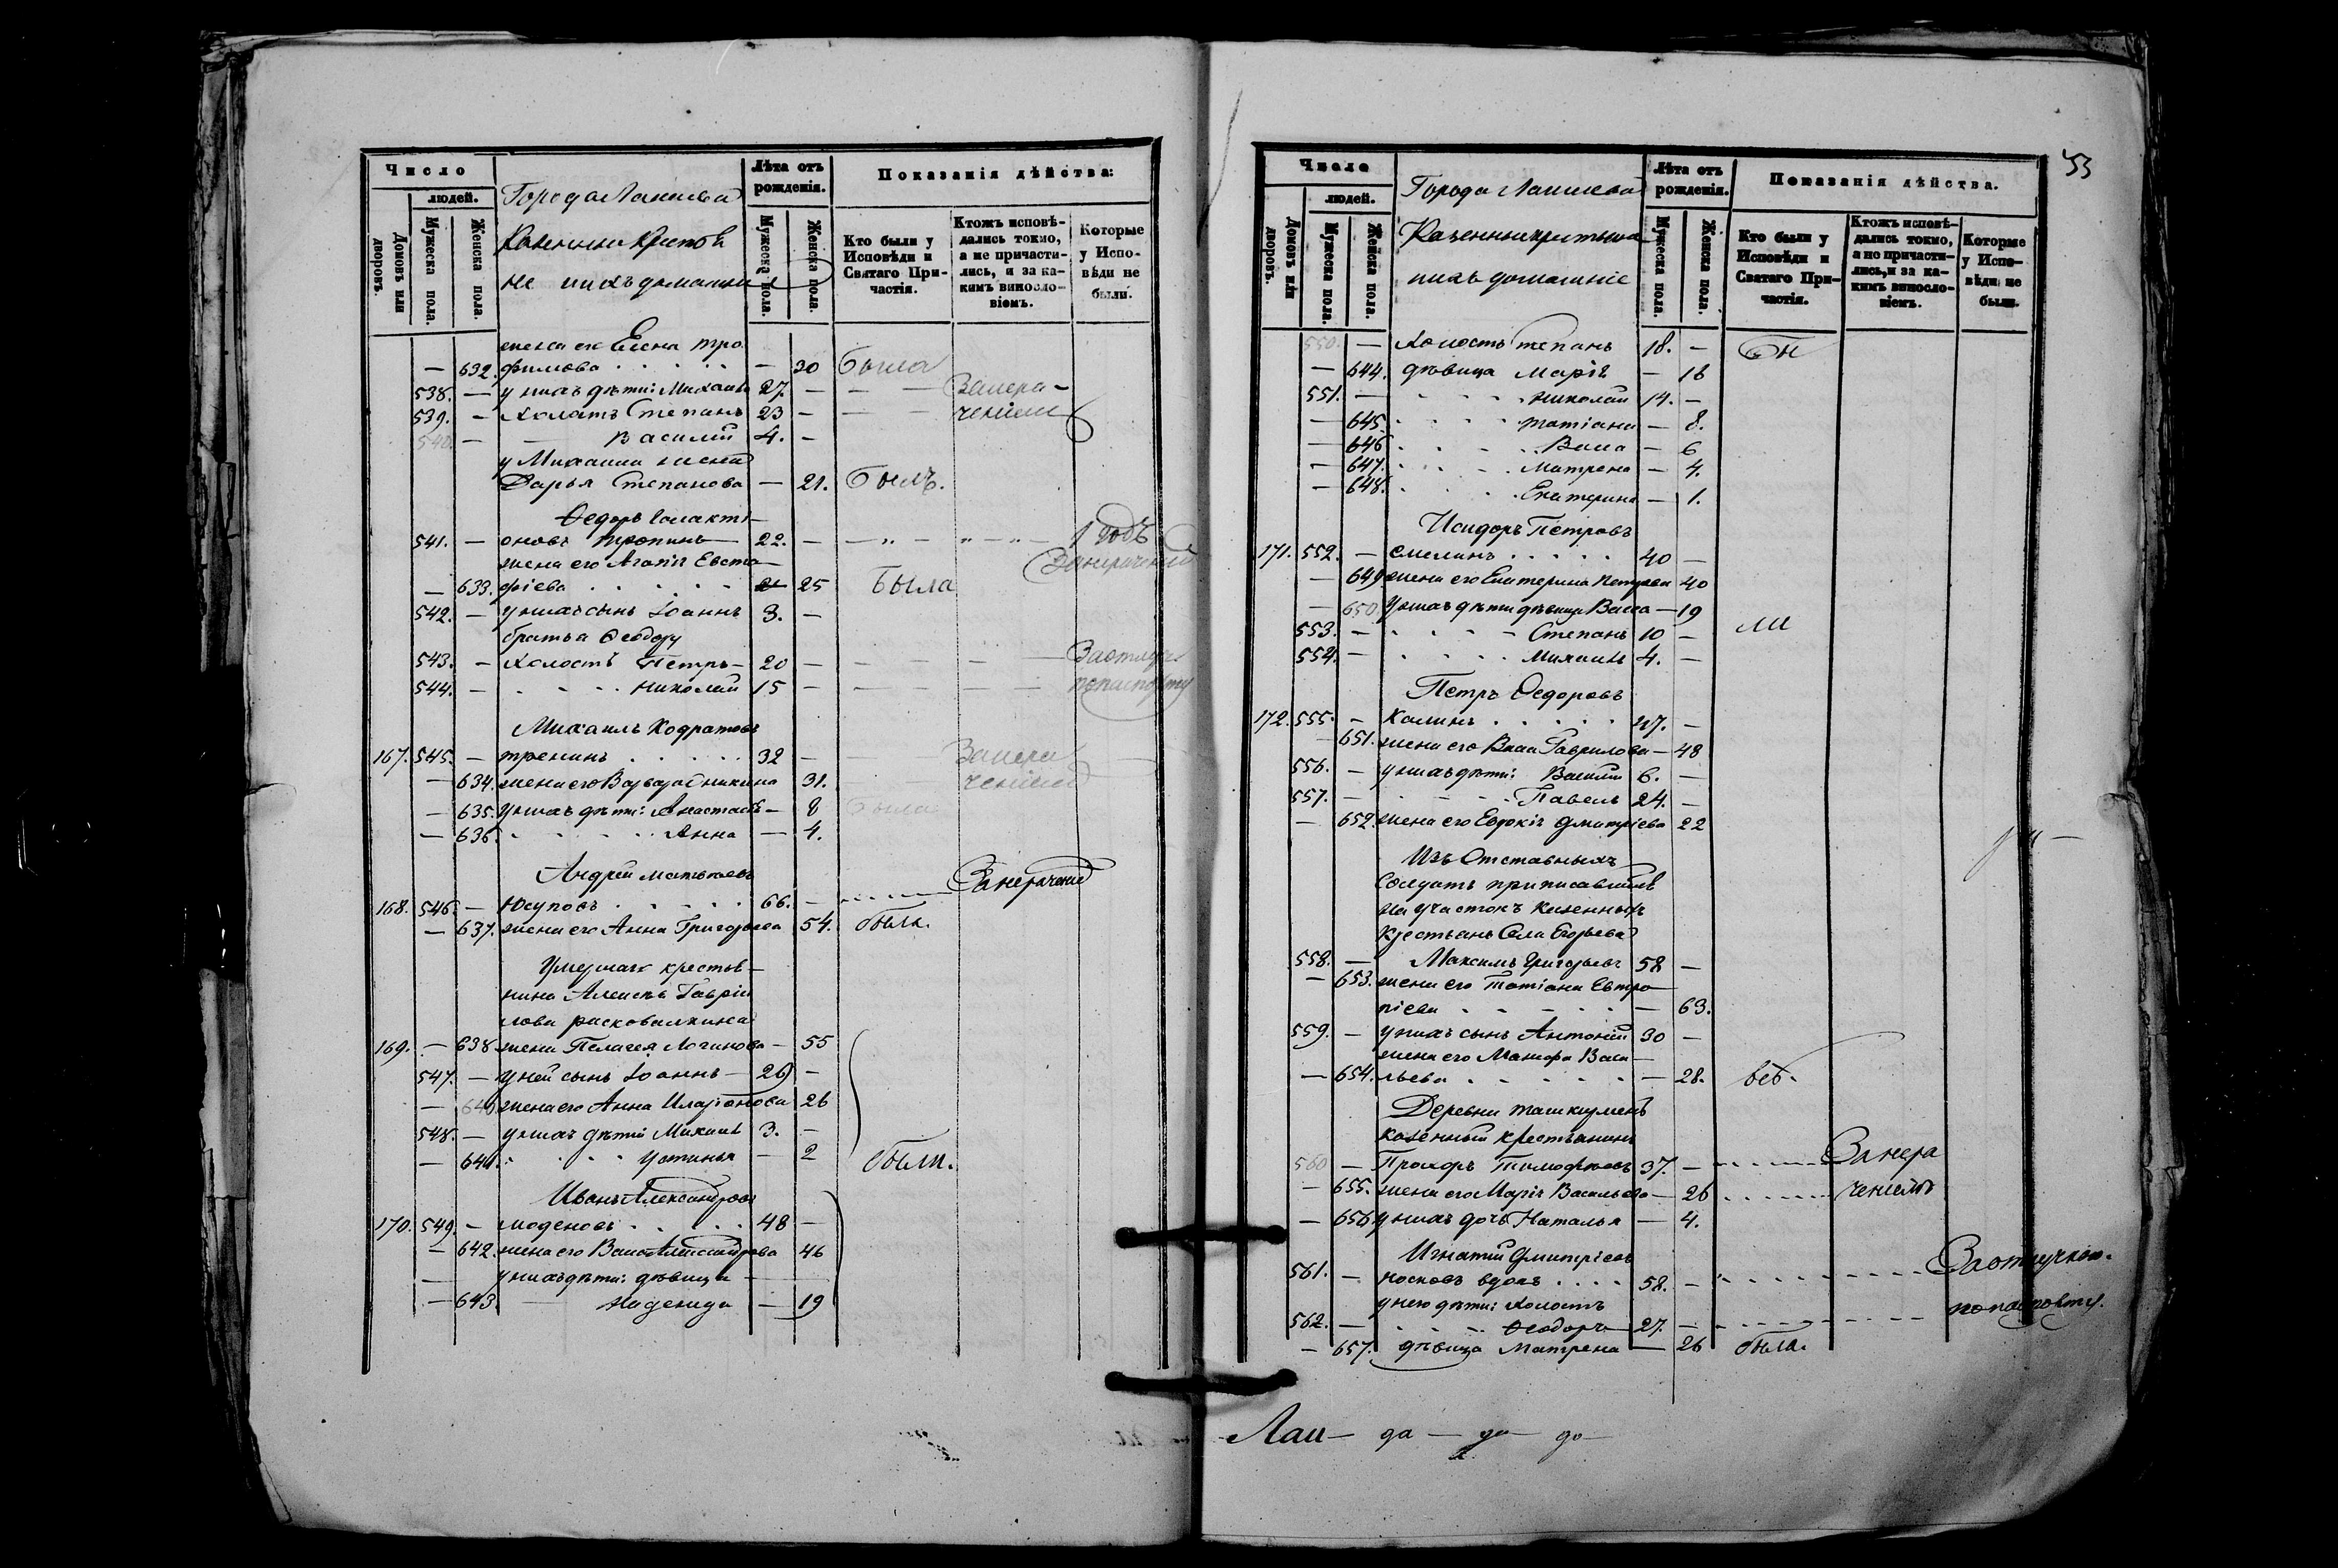 Число
людей.
Домовъ или дворовъ.
Мужеска пола.
Женска пола.
Города Лаишева
Казенныи Крестья
не и ихъ домашніе
Лѣта отъ рожденія.
Мужеска пола.
Женска пола.
Показанія дѣйства:
Кто были у Исповѣди и Святаго Причастія.
Ктожъ исповѣдались токмо, а не причастились, и за какимъ винословіемъ.
Которые у Исповѣди не были.
жена его Елена Тро
— 632. фимова — 30 была
538. — у нихъ дѣти: Михаилъ 27. — Занера-
539. — холостъ Степанъ 23 — ченіем
540. — Василій 4. —
у Михаила жена
Дарья Степанова — 21. былъ.
Ѳедоръ Галакті-
541. — оновъ 22. — 1 годъ
жена его Агапія Евста- Занераченіем
— 633. фіева 25 была
542. — у нихъ сынъ Іоаннъ 3. —
братья Ѳеодору
543. — холостъ Петръ — 20 — Заотлуч.
544. — Николай 15 — попаспорту
Михаилъ Кодратовъ
167. 545. — 32 — Занера
— 634. жена его Варвара Аникина 31. ченіем
— 635. у нихъ дѣти: Анастасія — 8 была
— 636. Анна — 4.
Андрей Матвѣевъ
168. 546. — Юсуповъ 66. — Занераченіем
— 637. жена его Анна Григорьева 54. была.
Умершаго крестья-
нина Алексѣя Гаври
лова
169. — 638 жена Пелагея Логинова — 55
547. — у ней сынъ Іоаннъ — 29 —
— 640 жена его Анна Иларіонова 26
548. — у нихъ дѣти Михаилъ 3. —
— 641. Устинья — 2 были.
Иванъ Александровъ
170. 549. — 48 —
— 642. жена его Васса Александрова 46
у нихъ дѣти: дѣвица —
— 643. Надежда — 19
53
Число
людей.
Домовъ или дворовъ.
Мужеска пола.
Женска пола.
Города Лаишева
Казенныи крестьяна
и ихъ домашніе
Лѣта отъ рожденія.
Мужеска пола.
Женска пола.
Показанія дѣйства.
Кто были у Исповѣди и Святаго Причастія.
Ктожъ исповѣдались токмо, а не причастились, и за какимъ винословіемъ.
Которые у Исповѣди не были.
550. — холостъ Степанъ 18. — бы
— 644. дѣвица Марія — 16
551. — Николай 14. —
— 645. Татіана — 8.
— 646 Васса — 6
— 647. Матрена — 4.
— 648. Екатерина — 1.
Исидоръ Петровъ
171. 552. — Смелинъ 40 —
— 649 жена его Екатерина Петрова 40
— 650 у нихъ дѣти дѣвица Васса — 19
553. — Степанъ 10 — ли
554. — Михаилъ 4. —
Петръ Ѳедоровъ
172. 555. — Калинъ 47. —
651. жена его Васса Гаврилова — 48
556. — у нихъ дѣти: Василій 6. —
557. — Павелъ 24. —
— 652. жена его Евдокія Дмитріева 22
Изъ Отставныхъ
Солдатъ приписавшійся
на участокъ казенныхъ
крестьянъ Села Егорьева
558. — Максимъ Григорьевъ 58 —
— 653. жена его Татіана Евтро
піева — 63.
559. — у нихъ сынъ Антоній 30 —
жена его Васи-
— 654. льева — 28. всѣ.
Деревни Ташкирмень
казенный крестьянинъ
560 — Прохоръ Тимофѣевъ 37. — Занера
— 655. жена его Марія Васильева — 26 ченіемъ
— 656 у нихъ дочь Наталья — 4.
Игнатій Дмитріевъ
561. — Носковъ вдовъ 58. — Заотлучкою.
у него дѣти: холостъ
562. — Ѳеодоръ — 27. — попаспорту.
— 657. дѣвица Матрена — 26 была.
Лаи — да — да — до —